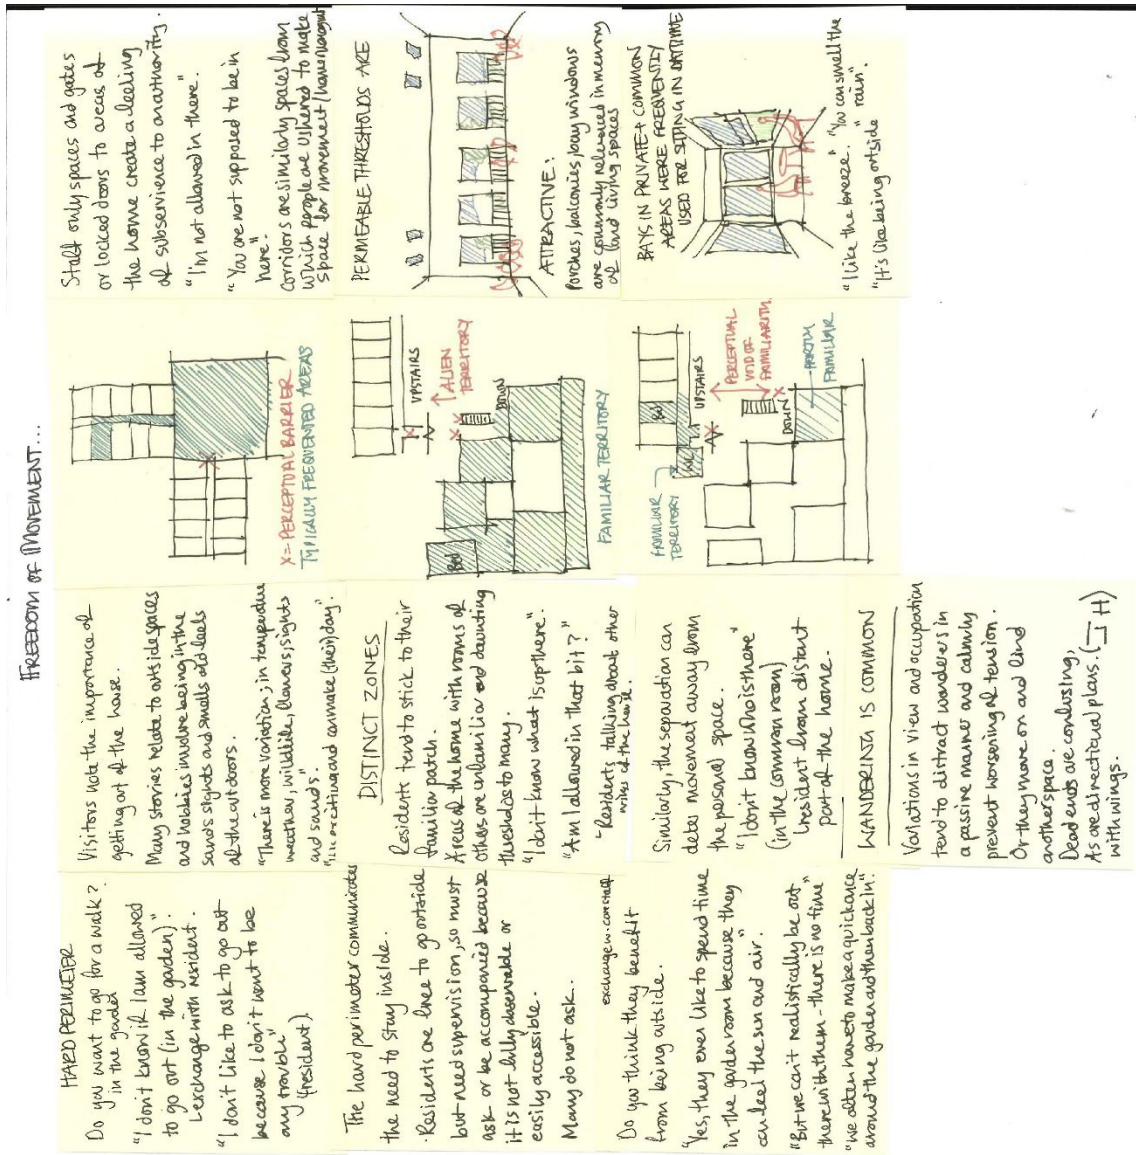 FREEDOM OF MOVEMENT...
HARD PERIMETER
Do you want to go for a walk?
in the garden
"I don't know if I am allowed
to go out (in the garden)".
exchange with resident.
"I don't like to ask to go out
because I don't want to be
any trouble"
(resident)
The hard perimeter communicates
the need to stay inside.
Residents are free to go outside
but need supervision, so must
ask or be accompanied because
it is not fully observable or
easily accessible.
Many do not ask.
exchange w. care staff
Do you think they benefit
from being outside.
"Yes, they even like to spend time
in the garden room because they
can feel the sun and air."
"But we can't realistically be out
there with them - there is no time"
"We often have to make a quick dance
around the garden and then back in".
Visitors note the importance of
getting out of the house.
Many stories relate to outside spaces
and hobbies involve being in the
sands sights and smells and feels
of the outdoors.
"There is more variation; in temperature
weather, wildlife, flowers, sights
and sounds".
exciting and can make (their) day".
DISTINCT ZONES
Residents tend to stick to their
familiar patch.
Areas of the home with rooms of
others are unfamiliar and daunting
thresholds to many.
"I don't know what is up there".
"Am I allowed in that bit?"
- Residents talking about other
wings of the house.
Similarly, the separation can
deter movement away from
the personal space.
"I don't know who is there"
(in the common room)
resident from distant
part of the home.
WANDERING IS COMMON
Variations in view and occupation
tend to distract wanderers in
a passive manner and calmly
prevent worsening of tension.
Or they move on and find
another space.
Dead ends are confusing,
As are directional plans. (
with wings.
X = PERCEPTUAL BARRIER
TYPICALLY FREQUENTED AREAS
Bed
UPSTAIRS
ALIEN
TERRITORY
DOWN
FAMILIAR TERRITORY
FAMILIAR
TERRITORY
WC
Bed
UPSTAIRS
PERCEPTUAL
VOID OF
FAMILIARITY
DOWN
PARTLY
FAMILIAR
Staff only spaces and gates
or locked doors to areas of
the home create a feeling
of subservience to authority.
"I'm not allowed in there".
"You are not supposed to be in
here"
Corridors are similarly spaces from
which people are ushered to make
space for movement
PERMEABLE THRESHOLDS ARE
ATTRACTIVE.
Porches, balconies, bay windows
are commonly referenced in memory
of fond living spaces
BAYS IN PRIVATE + COMMON
AREAS WERE FREQUENTLY
USED FOR SITTING IN DAYTIME
"I like the breeze." "You can smell the
rain".
"It's like being outside"